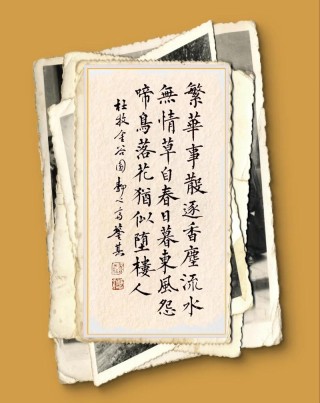 繁華事散逐香塵流水
無情草自春日暮東風怨
啼鳥落花猶似墮樓人
杜牧金谷園